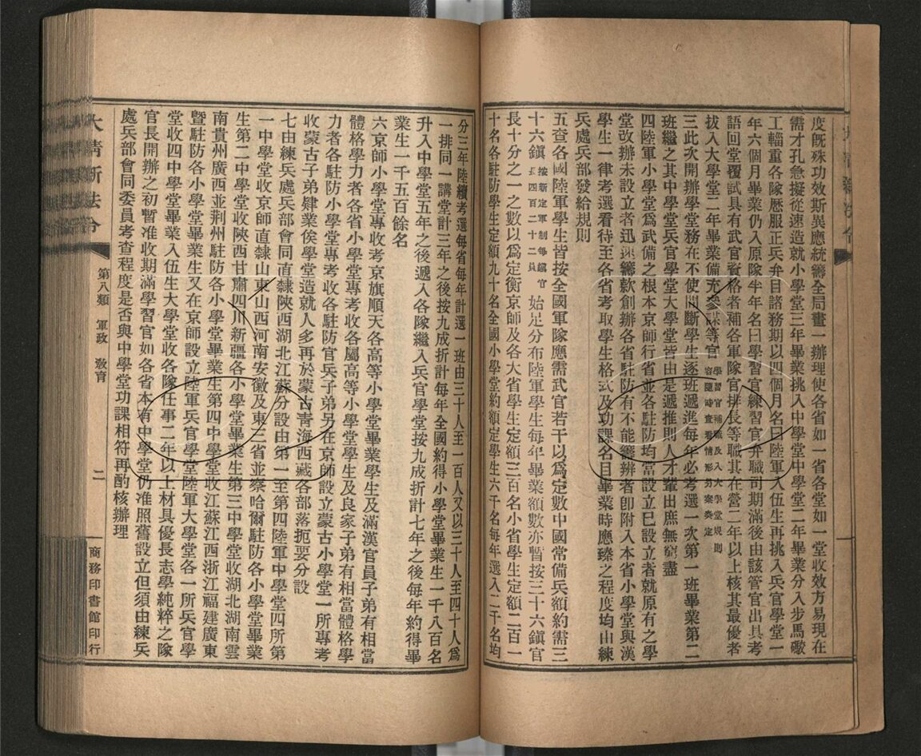 度既殊功效斯異應統籌全局畫一辦理使各省如一省各堂如一堂收效方易現在
需才孔急擬從速造就小學堂三年畢業挑入中學堂中學堂二年畢業分入步馬礮
工輜重各隊歷服正兵弁目諸務期以四個月名曰陸軍入伍生再挑入兵官學堂一
年六個月畢業仍入原隊半年名曰學習官練習官弁職司期滿後由該管官出具考
語回堂覆試具有武官資格者補各軍隊官排長等職其在營二年以上核其最優者
拔入大學堂二年畢業備充參謀等官
學習官補順及入大學堂規則
容隨時查看情形另案奏定
三此次開辦學堂務在不使間斷學生逐班遞進每年必考選一次第一班畢業第二
班繼之其中學堂兵官學堂大學堂皆由是遞推則人才輩出庶無窮盡
四陸軍小學堂爲武備之根本京師行省並各駐防均當設立已設立者就原有之學
堂改辦未設立者迅速籌款創辦各省駐防有不能籌辦者卽附入本省小學堂與漢
學生一律考選看待至各省考取學生格式及功課名目畢業時應臻之程度均由練
兵處兵部發給規則
五查各國陸軍學生皆按全國軍隊應需武官若干以爲定數中國常備兵額約需三
十六鎭
按新定軍制每鎭官
長四百二十二員
始足分布陸軍學生每年畢業額數亦暫按三十六鎭官
長十分之一之數以爲定衡京師及各大省學生定額三百名小省學生定額二百一
十名各駐防學生定額九十名全國小學堂約額定學生六千名每年選入二千名均
分三年陸續考選每省每年計選一班由三十人至一百人又以三十人至四十人爲
一排同一講堂計三年之後按九成折計每年全國約得小學堂畢業生一千八百名
升入中學堂五年之後遞入各隊繼入兵官學堂按九成折計七年之後每年約得畢
業生一千五百餘名
六京師小學堂專收考京旗順天各高等小學堂畢業學生及滿漢官員子弟有相當
體格學力者各省小學堂專考收各屬高等小學堂學生及良家子弟有相當體格學
力者各駐防小學堂專考收各駐防官兵子弟另在京師設立蒙古小學堂一所專考
收蒙古子弟肄業俟學堂造就人多再於蒙古靑海西藏各部落扼要分設
七由練兵處兵部會同直隸陝西湖北江蘇分設由第一至第四陸軍中學堂四所第
一中學堂收京師直隸山東山西河南安徽及東三省並察哈爾駐防各小學堂畢業
生第二中學堂收陝西甘肅四川新疆各小學堂畢業生第三中學堂收湖北湖南雲
南貴州廣西並荆州駐防各小學堂畢業生第四中學堂收江蘇江西浙江福建廣東
暨駐防各小學堂畢業生又在京師設立陸軍兵官學堂陸軍大學堂各一所兵官學
堂收四中學堂畢業入伍生大學堂收各隊任事二年以上材具優長志學純粹之隊
官長開辦之初暫准收期滿學習官如各省本有中學堂仍准照舊設立但須由練兵
處兵部會同委員考查程度是否與中學堂功課相符再酌核辦理
大淸新法令
第八類　軍政　敎育
二
商務印書館印行